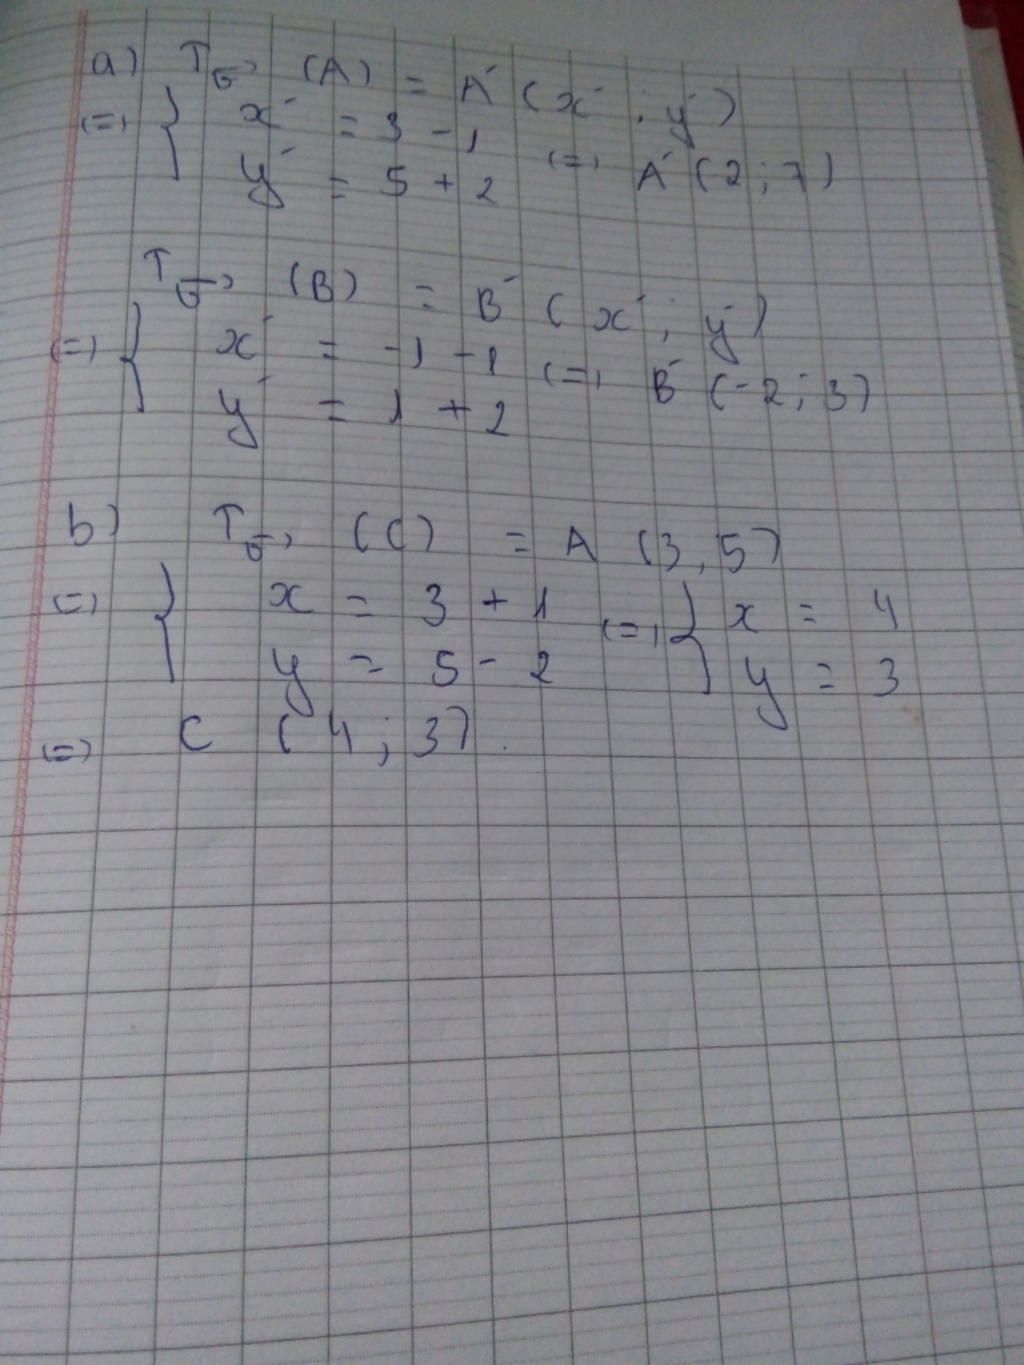 a) T_v⃗ (A) = A' (x' ; y')
<=> { x' = 3 - 1
y' = 5 + 2 <=> A' (2 ; 7)
T_v⃗ (B) = B' (x' ; y')
<=> { x' = -1 - 1
y' = 1 + 2 <=> B' (-2 ; 3)
b) T_v⃗ (C) = A (3, 5)
<=> { x = 3 + 1 <=> { x = 4
y = 5 - 2 y = 3
<=> C (4 ; 3).